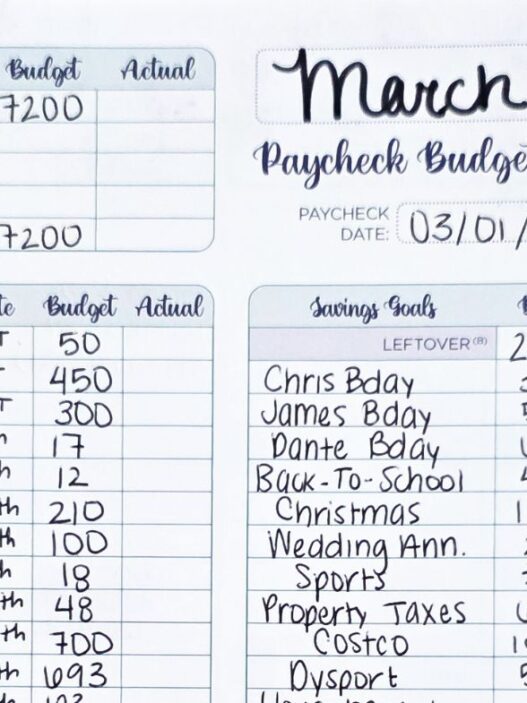 Budget Actual
7200
7200
March
Paycheck Budge
PAYCHECK
DATE: 03/01/
Budget Actual
T 50
T 450
T 300
h 17
h 12
th 210
th 100
h 18
th 48
th 700
th 693
Savings Goals
LEFTOVER (8) 2
Chris Bday
James Bday
Dante Bday
Back-To-School
Christmas
Wedding Ann.
Sports
Property Taxes
Costco
Dysport